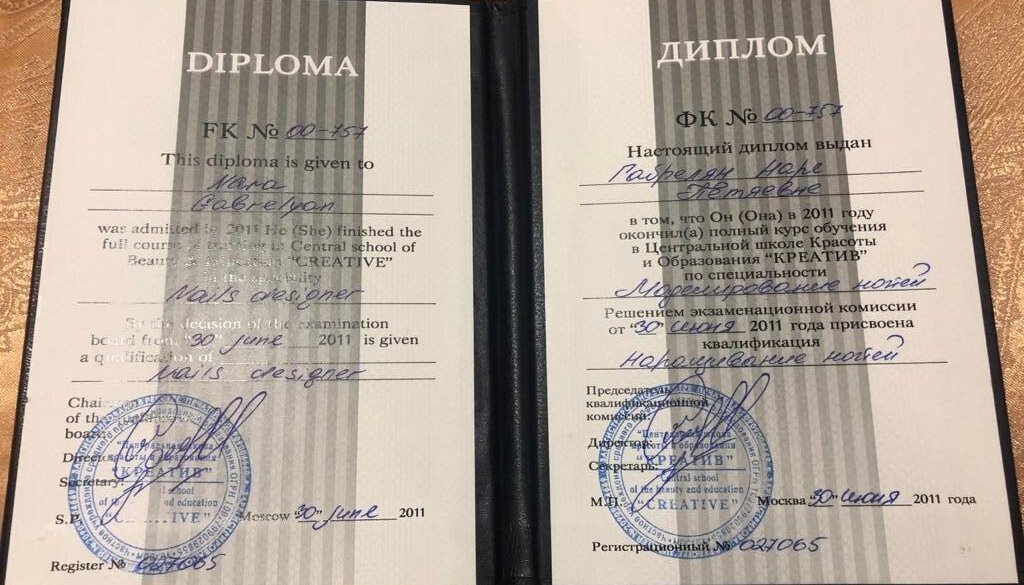 DIPLOMA
FK № 00-757
This diploma is given to
Nara
Gabrelyan
was admitted in 2011 He (She) finished the
full course of training in Central school of
Beauty & Education "CREATIVE"
in the speciality
Nails designer
By the decision of the examination
board from "30" june 2011 is given
a qualification of
Nails designer
Chairman
of the
board:
Director:
Secretary:
S.P.
Moscow "30" june 2011
Register № 027065
ДИПЛОМ
ФК № 00-757
Настоящий диплом выдан
Габрелян Наре
Петяевне
в том, что Он (Она) в 2011 году
окончил(а) полный курс обучения
в Центральной школе Красоты
и Образования "КРЕАТИВ"
по специальности
Моделирование ногтей
Решением экзаменационной комиссии
от "30" июня 2011 года присвоена
квалификация
Наращивание ногтей
Председатель
квалификационной
комиссии:
Директор:
Секретарь:
М.П.
Москва "30" июня 2011 года
Регистрационный № 027065
"Центральная школа
красоты и образования
"КРЕАТИВ"
Central school
of the beauty and education
"CREATIVE"